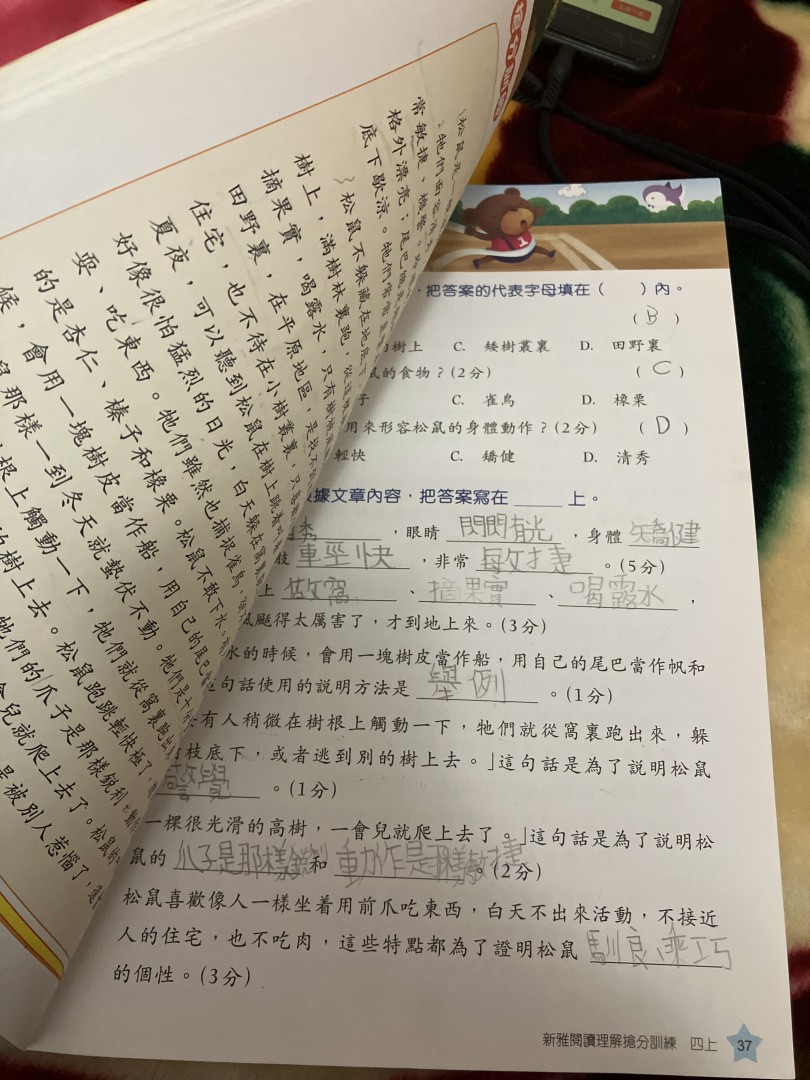 松鼠不躲藏在地底下
底下歇涼。牠們常常
格外漂亮；尾巴
常敏捷、機警。
樹上，滿樹林裏跑，
摘果實，喝露水，只有樹被風
田野裏，在平原地區，是找不
住宅，也不待在小樹叢裏，只
夏夜，可以聽到松鼠在樹上跳着叫着
好像很怕猛烈的日光，白天躲在窩裏
耍、吃東西。牠們雖然也捕捉雀鳥，
的是杏仁、榛子和橡栗。松鼠不敢下水。
候，會用一塊樹皮當作船，用自己的尾巴當
鼠那樣一到冬天就蟄伏不動。牠們是十分
根上觸動一下，牠們就從窩裏跑出
的樹上去。松鼠跑跳輕快極了，
牠們的爪子是那樣銳利，動
會兒就爬上去了。松鼠的
是被別人惹惱了，還
，把答案的代表字母填在（　）內。
（ B ）
樹上　C. 矮樹叢裏　D. 田野裏
鼠的食物？(2分)　（ C ）
子　C. 雀鳥　D. 橡栗
用來形容松鼠的身體動作？(2分)　（ D ）
輕快　C. 矯健　D. 清秀
據文章內容，把答案寫在____上。
秀，眼睛 閃閃有光，身體 矯健
肢 輕快，非常 敏捷。(5分)
上 做窩、摘果實、喝露水，
風颳得太厲害了，才到地上來。(3分)
水的時候，會用一塊樹皮當作船，用自己的尾巴當作帆和
句話使用的說明方法是 舉例。(1分)
有人稍微在樹根上觸動一下，牠們就從窩裏跑出來，躲
枝底下，或者逃到別的樹上去。」這句話是為了說明松鼠
警覺。(1分)
一棵很光滑的高樹，一會兒就爬上去了。」這句話是為了說明松
鼠的 爪子是那樣銳利 和 動作是那樣敏捷。(2分)
松鼠喜歡像人一樣坐着用前爪吃東西，白天不出來活動，不接近
人的住宅，也不吃肉，這些特點都為了證明松鼠 馴良、乖巧
的個性。(3分)
新雅閱讀理解搶分訓練　四上　37